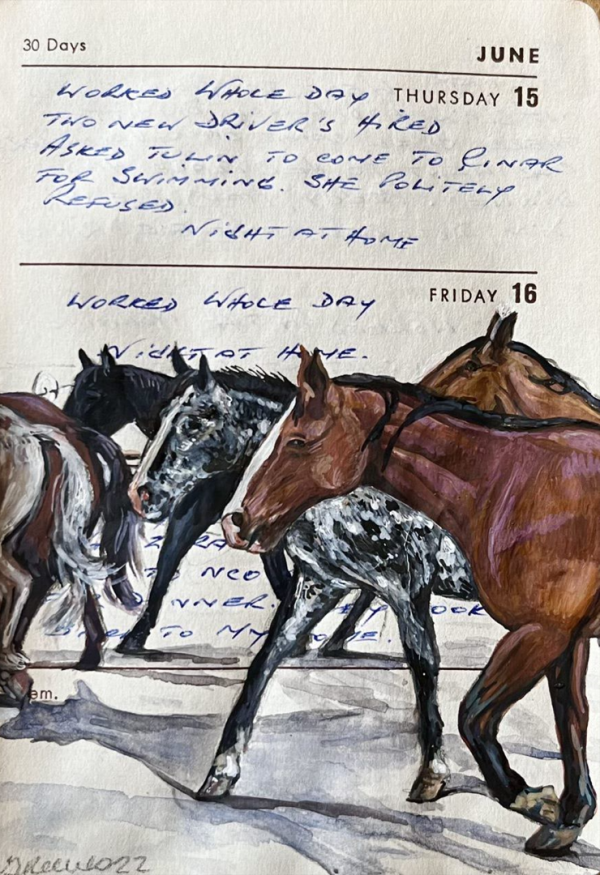 30 Days
JUNE
THURSDAY 15
WORKED WHOLE DAY
TWO NEW DRIVER'S HIRED
ASKED TO COME TO
FOR SWIMMING. SHE POLITELY
REFUSED.
NIGHT AT HOME
FRIDAY 16
WORKED WHOLE DAY
NIGHT AT HOME.
NCO
NNER.
OOK
TO MY
em.